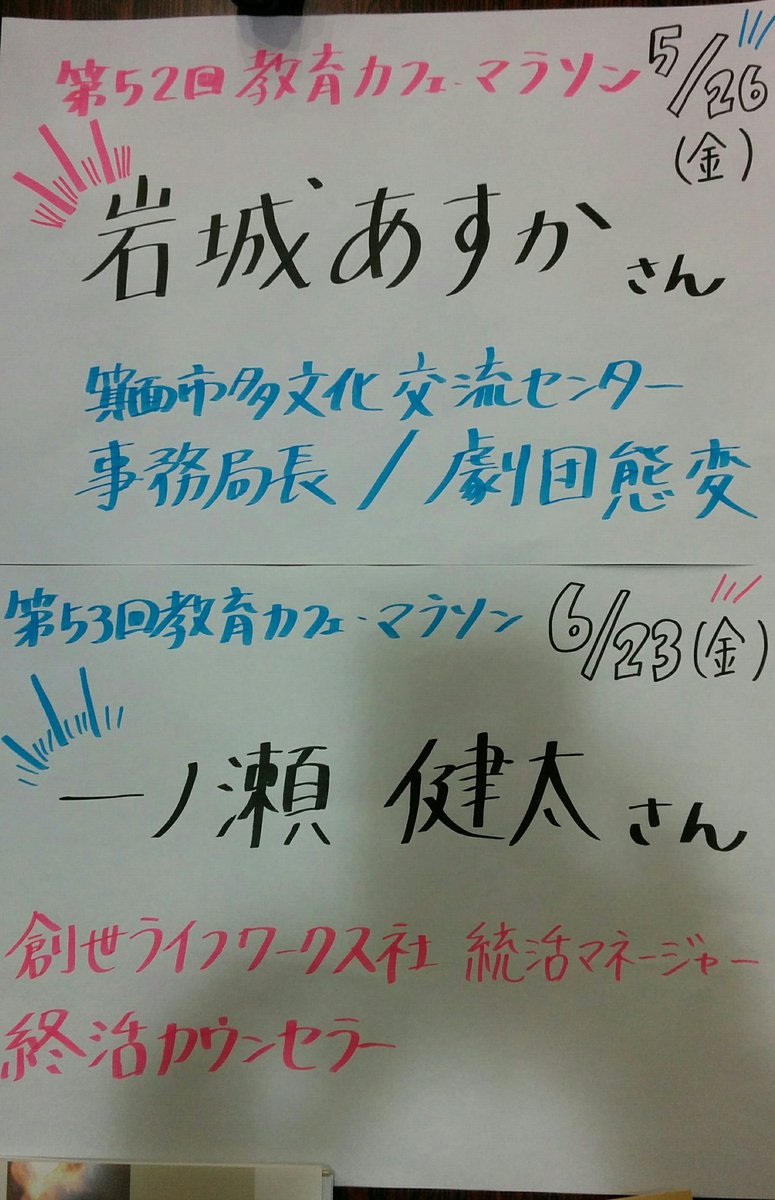 第52回教育カフェ・マラソン
5/26
(金)
岩城あすかさん
箕面市多文化交流センター
事務局長/劇団態変
第53回教育カフェ・マラソン
6/23(金)
一ノ瀬 健太さん
創世ライフワークス社 統活マネージャー
終活カウンセラー